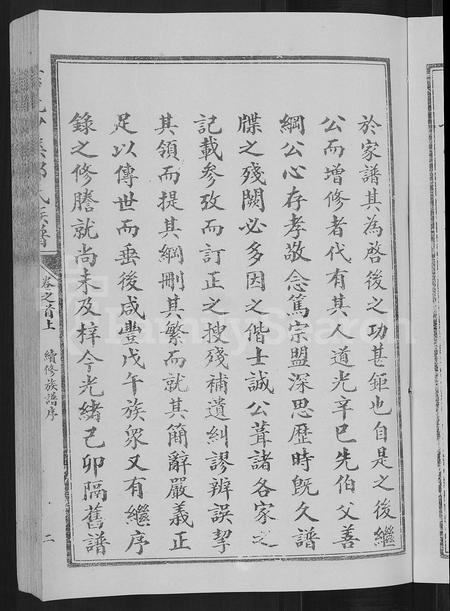 於家譜其為啓後之功甚鉅也自是之後繼
公而增修者代有其人道光辛巳先伯父善
綱公心存孝敬念篤宗盟深思歷時既久譜
牒之殘闕必多因之偕士誠公葺諸各家之
記載參攷而訂正之搜殘補遺糾謬辨誤挈
其領而提其綱刪其繁而就其簡辭嚴義正
足以傳世而垂後咸豐戊午族眾又有繼序
錄之修謄就尚未及梓今光緒己卯隔舊譜
氏族譜
卷之首上
續修族譜序
二
FamilySearch